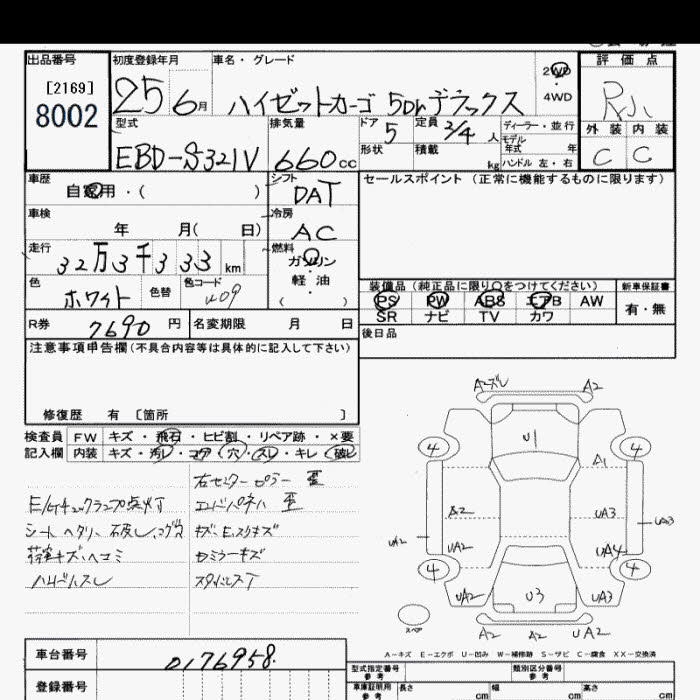 出品番号 初度登録年月 車名・グレード 評価点
[2169] 2WD
8002 25 6月 ハイゼットカーゴ 5Dr デラックス 4WD
型式 排気量 ドア 5 定員 2/4 人 ディーラー・並行 外装 内装
形状 積載 kg モデル年式 年 ハンドル 左・右
EBD-S321V 660cc C C
車歴 シフト セールスポイント (正常に機能するものに限ります)
自家用・( ) DAT
車検 冷房
年 月( 日) AC
走行 燃料
32万3千333km ガソリン
色 色替 色コード 軽・油 装備品(純正品に限り○をつけてください) 新車保証書
ホワイト W09 ( ) PS PW ABS エアB AW 有・無
SR ナビ TV カワ
R券 7690 円 名変期限 月 日 後日品
注意事項申告欄(不具合内容等は具体的に記入して下さい)
修復歴 有 [箇所 ]
検査員 FW キズ・飛石・ヒビ割・リペア跡・×要
記入欄 内装 キズ・汚レ・コゲ・穴・スレ・キレ・破レ
右センターピラー
E/Gチェックランプ点灯 エンドパネル
シート ヘタリ、破レ、コゲ穴 キズ・E、スリキズ
荷室キズ・ヘコミ ドアミラーキズ
ハンドルスレ
A2ズレ A2
U1
4 4
A1
A2 UA3
UA2 UA3
UA2 UA4
4 4
UA2 U3 UA3
スペア
A2 A2 UA2
A－キズ E－エクボ U－凹み W－補修跡 S－サビ C－腐食 XX－交換済
車台番号 0176958. 型式指定番号 参考 類別区分番号 参考
登録番号 車庫証明用 参考 長さ cm 幅 cm 高さ cm